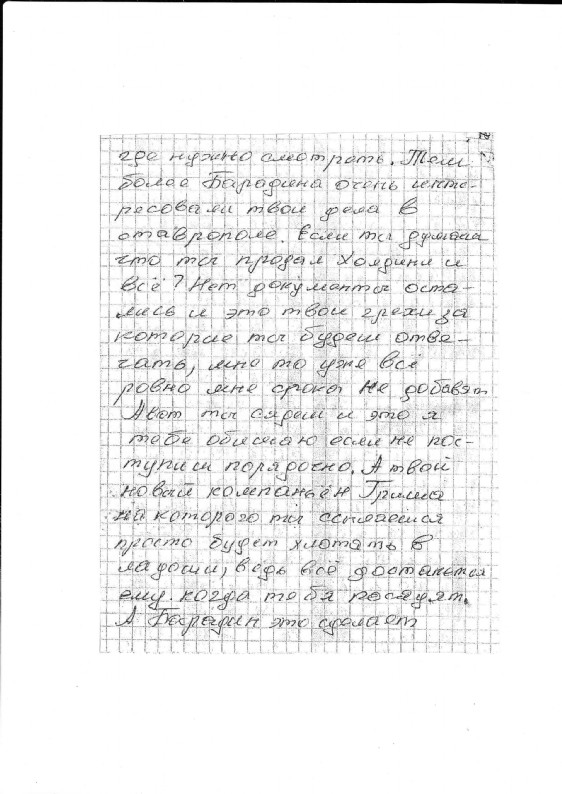 где нужно смотреть. Тем
более Барадина очень инте-
ресовали твои дела в
ставрополе. Если ты думаеш
что ты продал холдинг и
всё? Нет документы оста-
лись и это твои грехи за
которые ты будеш отве-
чать, мне то уже всё
ровно мне срока не добавят
А вот ты сядеш и это я
тебе обещаю если не пос-
тупиш порядочно. А твой
новый компаньён Гриша
на которого ты ссылаешся
просто будет хлопать в
ладоши, ведь всё достанется
ему когда тебя посадят.
А Барадин это сделает